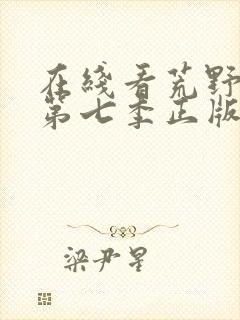 在綫看荒野
第七季正版
梁尹星